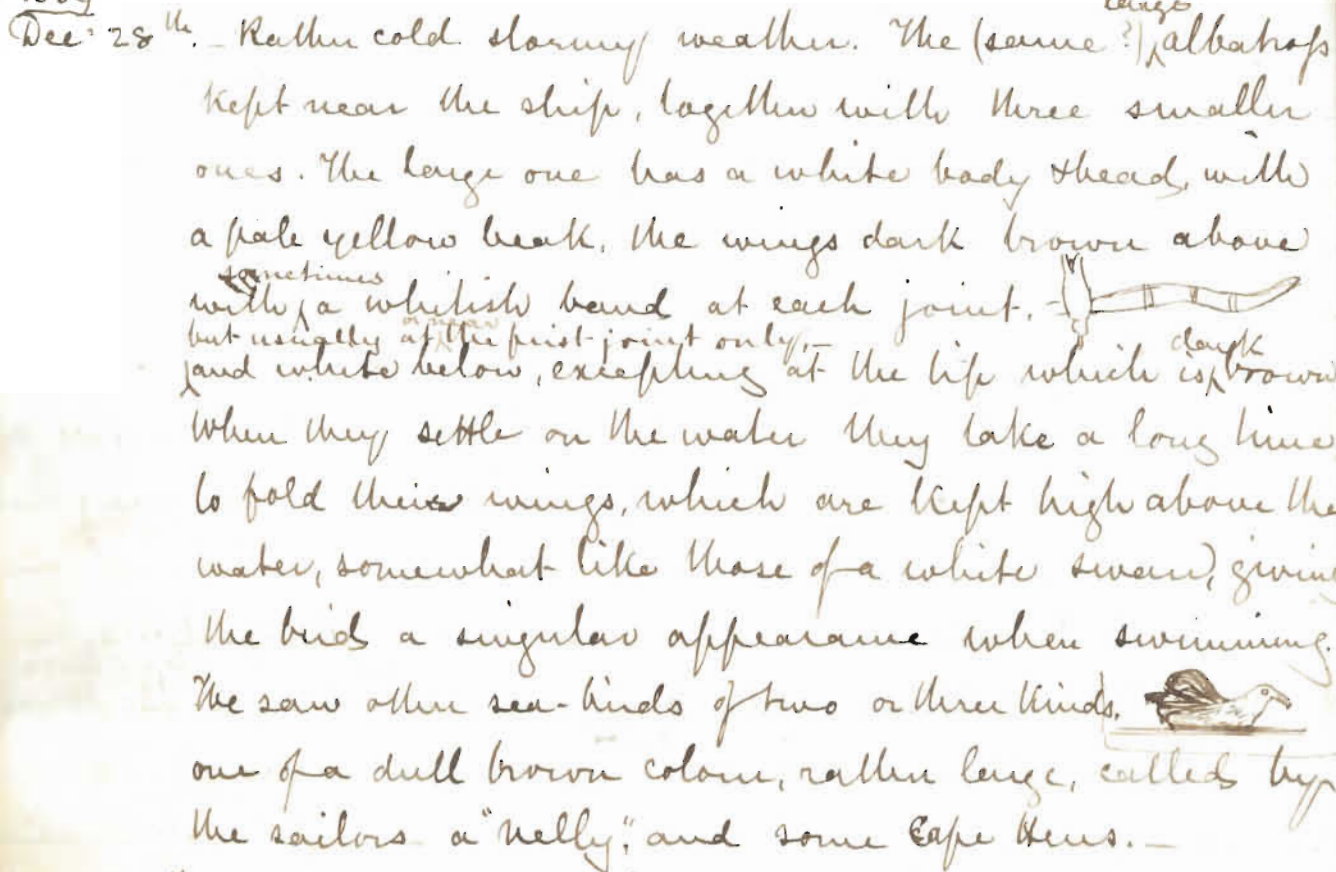 large
Dec: 28th. – Rather cold stormy weather. The (same ?) albatross
kept near the ship, together with three smaller
ones. The large one has a white body & head, with
a pale yellow beak, the wings dark brown above
sometimes
with a whitish band at each joint. –
but usually at or near the first joint only, –
dark
and white below, excepting at the tip which is brown
When they settle on the water they take a long time
to fold their wings, which are kept high above the
water, somewhat like those of a white swan, giving
the bird a singular appearance when swimming.
We saw other sea-birds of two or three kinds,
one of a dull brown colour, rather large, called by
the sailors a "Nelly", and some Cape Hens. –